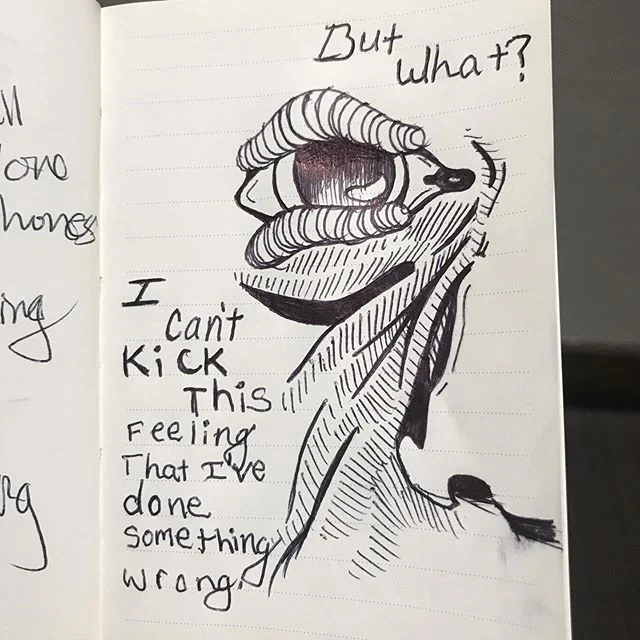 But
What?
ll
hones
ing
I
can't
KicK
This
Feeling
That I've
done
something
wrong.